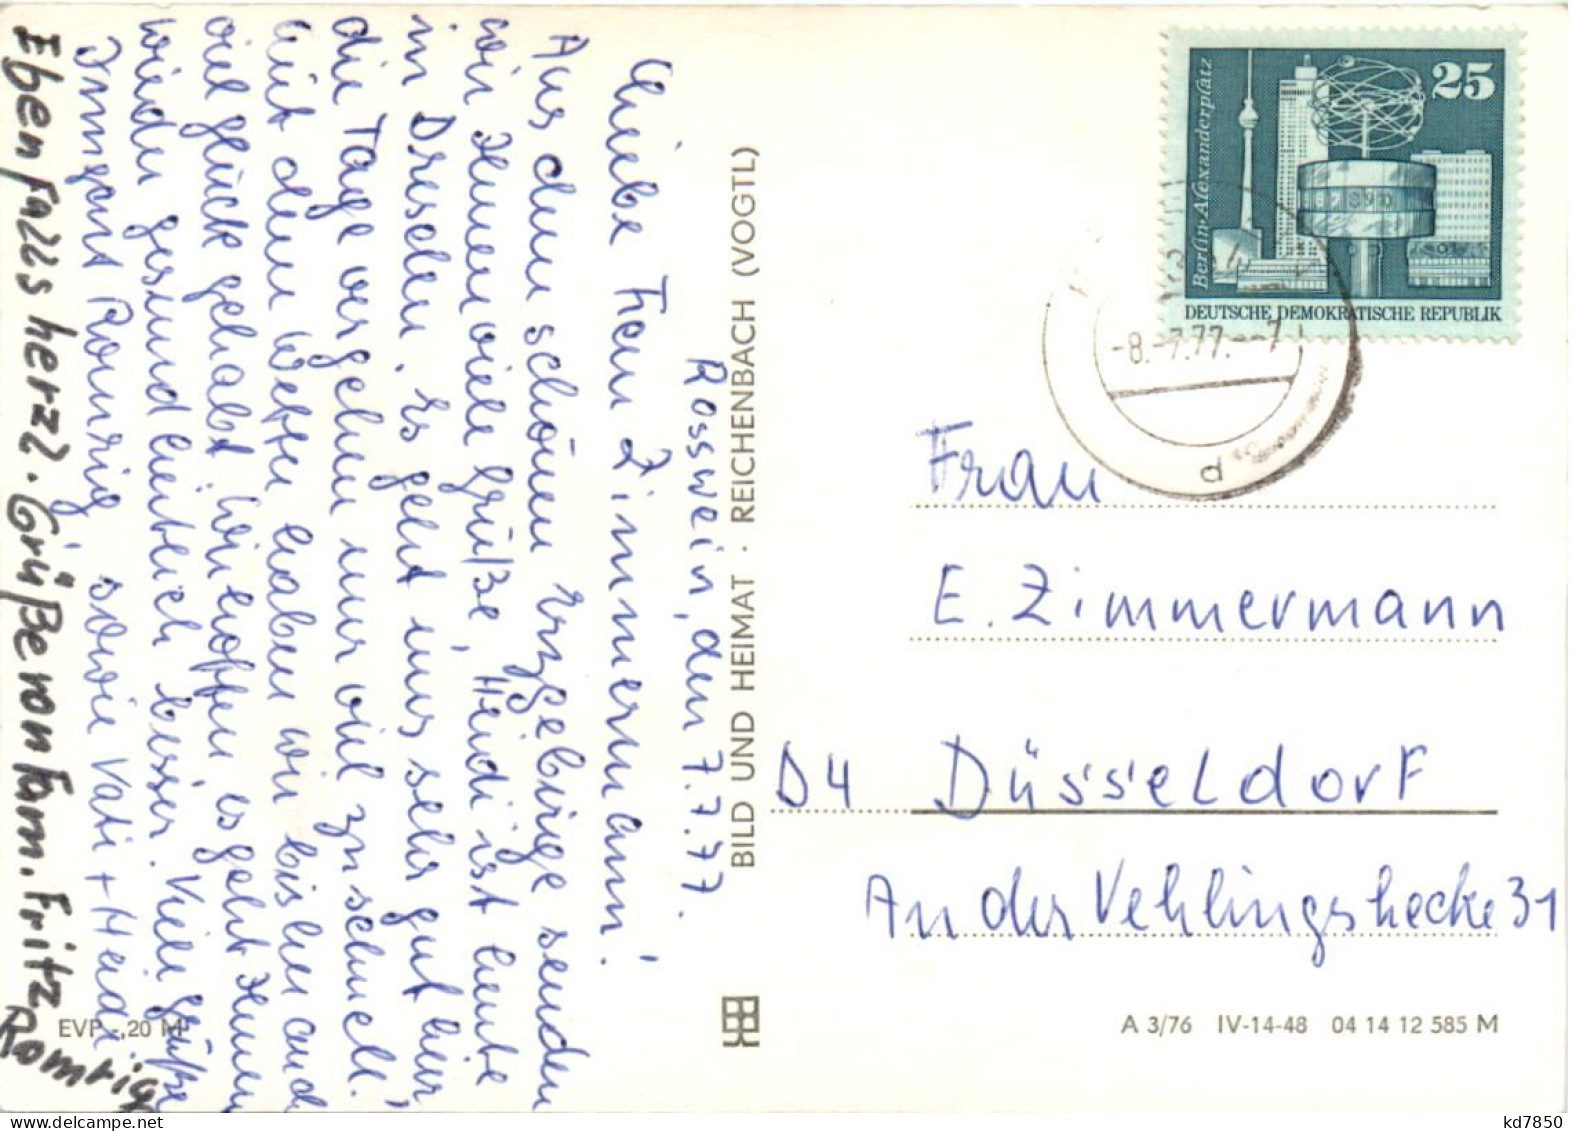 Rosswein, den 7.7.77.
Liebe Frau Zimmermann!
Aus dem schönen Erzgebirge senden
wir Ihnen viele Grüße, Heidi ist heute
in Dresden. Es geht uns sehr gut hier
die Tage vergehen nur viel zu schnell.
Mit dem Wetter haben wir bisher auch
viel Glück gehabt. Wir hoffen es geht Ihnen
wieder gesundheitlich besser. Viele Grüße
Irmgard Romrig, sowie Vati + Heidi.
Ebenfalls herzl. Grüße von Fam. Fritz
Romrig
BILD UND HEIMAT · REICHENBACH (VOGTL)
EVP -,20 M
Berlin-Alexanderplatz
25
6 7 8 9 10
DEUTSCHE DEMOKRATISCHE REPUBLIK
-8.-7.77.--7
Frau
E. Zimmermann
D4 Düsseldorf
An der Vehlingshecke 31
A 3/76 IV-14-48 04 14 12 585 M
kd7850